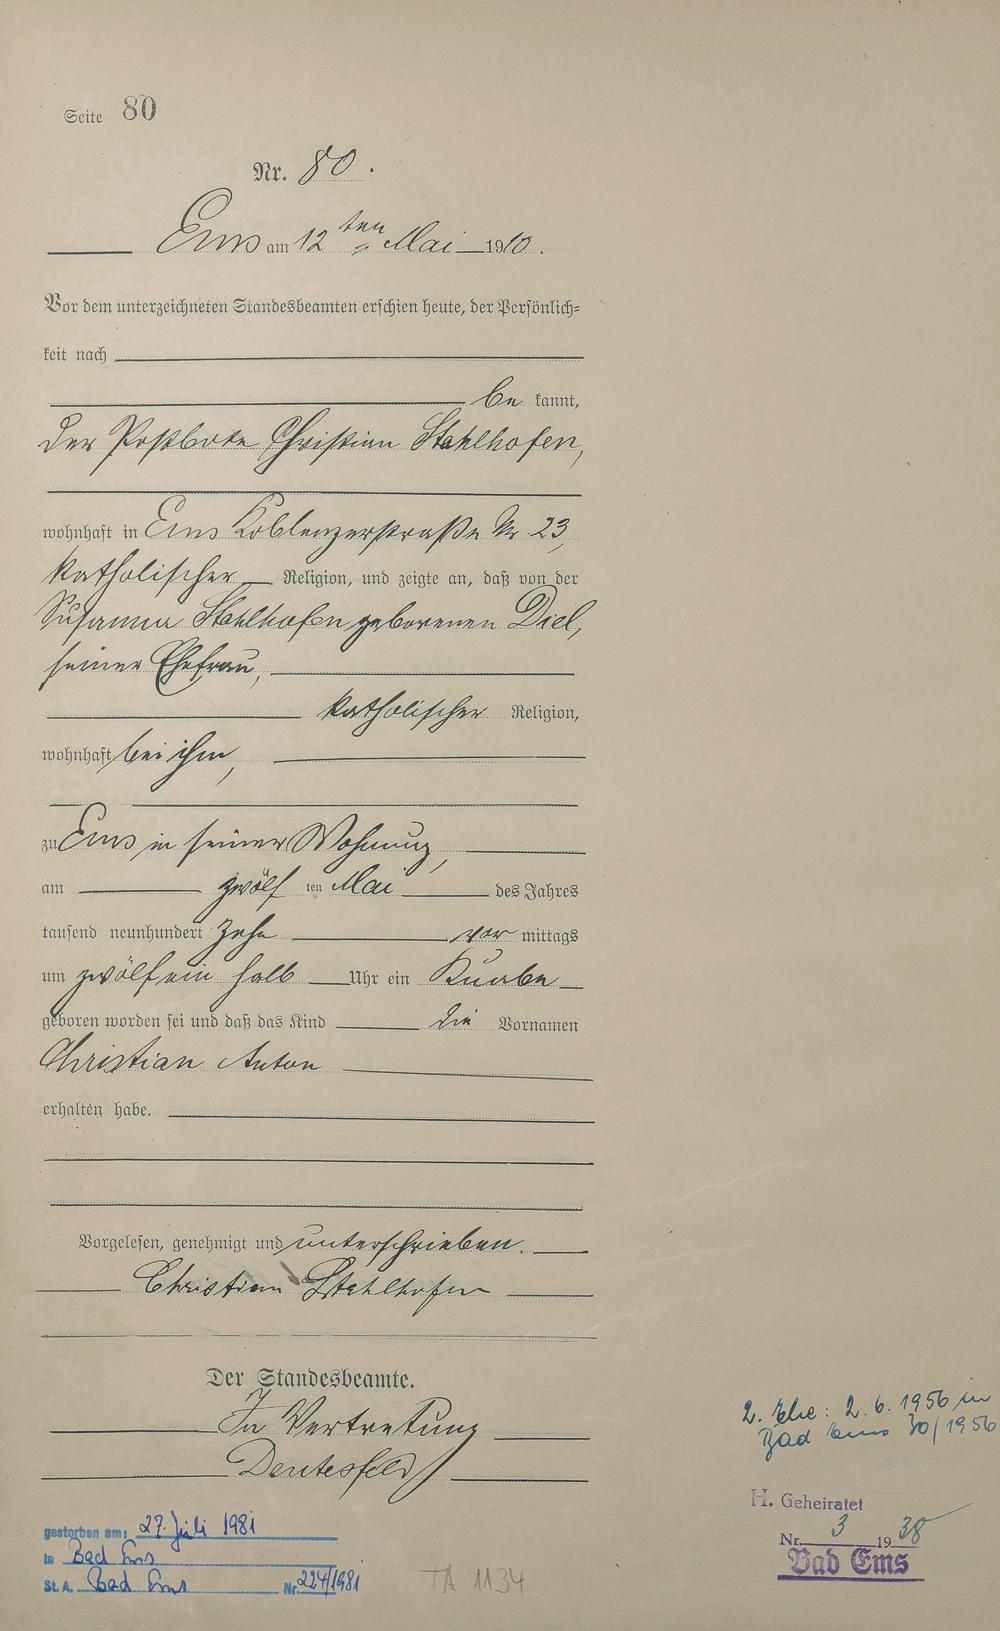 Seite 80
Nr. 80.
Ems am 12 ten Mai 1910.
Vor dem unterzeichneten Standesbeamten erschien heute, der Persönlich=
keit nach
be kannt,
der Postbote Christian Stahlhofen,
wohnhaft in Ems Koblenzerstraße Nr 23,
katholischer Religion, und zeigte an, daß von der
Susanna Stahlhofen geborenen Diel,
seiner Ehefrau,
katholischer Religion,
wohnhaft bei ihm,
zu Ems in seiner Wohnung,
am zwölf ten Mai des Jahres
tausend neunhundert zehn vor mittags
um zwölf ein halb Uhr ein Knabe
geboren worden sei und daß das Kind die Vornamen
Christian Anton
erhalten habe.
Vorgelesen, genehmigt und unterschrieben.
Christian Stahlhofen
Der Standesbeamte.
In Vertretung
Deutesfeld
2. Ehe: 2.6.1956 in
Bad Ems 30/1956
H. Geheiratet
Nr. 3 1938
Bad Ems
gestorben am: 27. Juli 1981
in Bad Ems
St. A. Bad Ems Nr. 224/1981
TA 1134